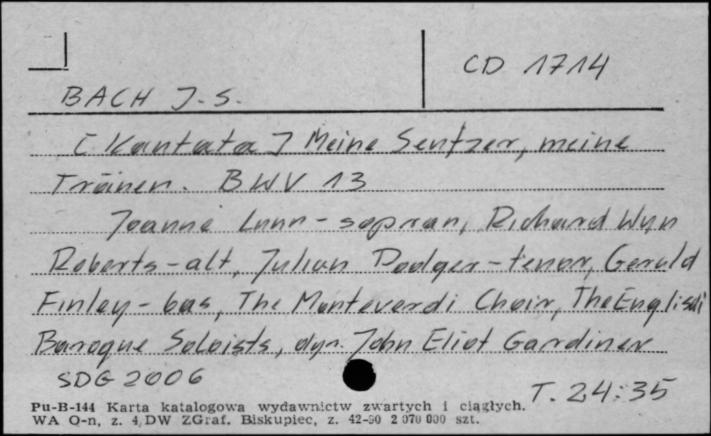 CD 1714
BACH J.S.
[Kantata] Meine Sentzer, meine
Tränen. BWV 13
Joanne Lunn - sopran, Richard Wyn
Roberts - alt, Julian Podger - tenor, Gerald
Finley - bas, The Monteverdi Choir, The English
Baroque Soloists, dyr. John Eliot Gardiner
SDG 2006
T. 24:35
Pu-B-144 Karta katalogowa wydawnictw zwartych i ciągłych.
WA O-n, z. 4, DW ZGraf. Biskupiec, z. 42-90 2 070 000 szt.